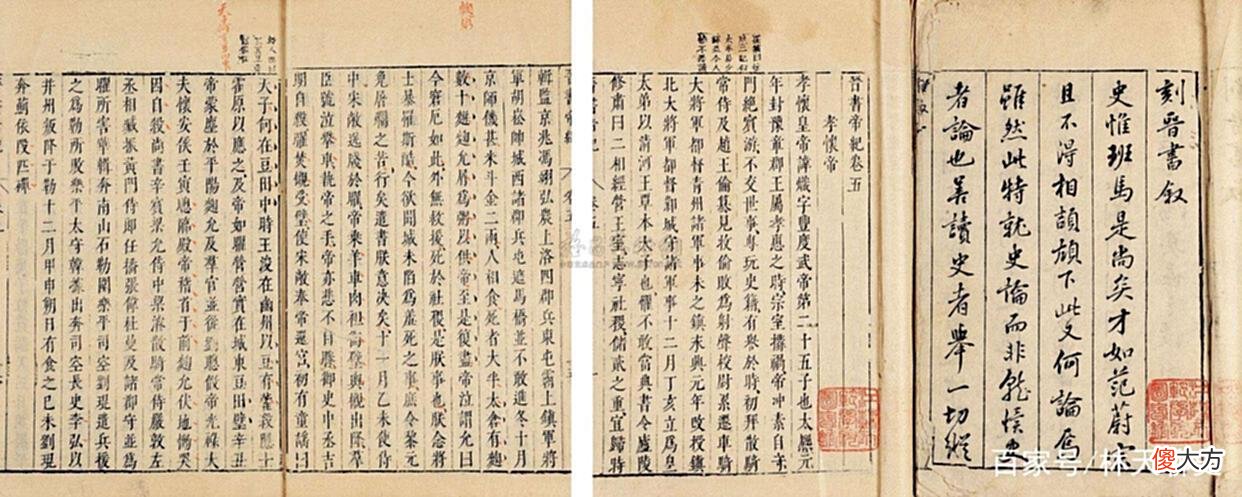 刻晋書叙
史惟班馬是尚矣才如范蔚宗
且不得相頡頏下此又何論焉
雖然此特就史論而非就讀史
者論也善讀史者舉一切縱
晉書帝紀卷五
孝懷帝
孝懷皇帝諱熾字豐度武帝第二十五子也太熈元
年封豫章郡王屬孝惠之時宗室搆禍帝冲素自守
門絶賓游不交世事專玩史籍有譽於時初拜散騎
常侍及趙王倫簒見收倫敗爲射聲校尉累遷車騎
大將軍都督青州諸軍事未之鎮永興元年改授鎮
北大將軍都督鄴城守諸軍事十二月丁亥立爲皇
太弟以清河王覃本太子也懼不敢當典書令廬陵
修肅曰二相經營王室志寧社稷儲貳之重宜歸時
輯監京兆馮翊弘農上洛四郡兵東屯霸上鎮軍將
軍胡崧帥城西諸郡兵屯遮馬橋並不敢進冬十月
京師饑甚米斗金二兩人相食死者大半太倉有麴
數十麴允屑爲粥以供帝至是復盡帝泣謂允曰
今窘厄如此外無救援死於社稷是朕事也朕念將
士暴離斯酷今欲聞城未陷爲羞死之事庶令黎元
免屠爛之苦行矣遣書朕意决矣十一月乙未使侍
中宋敞送牋於曜帝乘羊車肉袒銜璧輿櫬出降羣
臣號泣攀車執帝之手帝亦悲不自勝御史中丞吉
朗自殺曜焚櫬受璧使宋敞奉帝還宫初有童謠曰
天子何在豆田中時王浚在幽州以豆有藿殺隱士
霍原以應之及帝如曜營營實在城東豆田壁辛丑
帝蒙塵於平陽麴允及羣官並從劉聰假帝光祿大
夫懷安侯壬寅聰臨殿帝稽首于前麴允伏地慟哭
因自殺尚書辛賓梁允侍中梁濬散騎常侍嚴敦左
丞相臧振黃門侍郎任播張偉杜曼及諸郡守並爲
曜所害華輯奔南山石勒圍樂平司空劉琨遣兵援
之爲勒所敗樂平太守韓據出奔司空長史李弘以
并州叛降于勒十二月甲申朔日有食之己未劉琨
奔薊依段匹磾
百家号/
傻大方